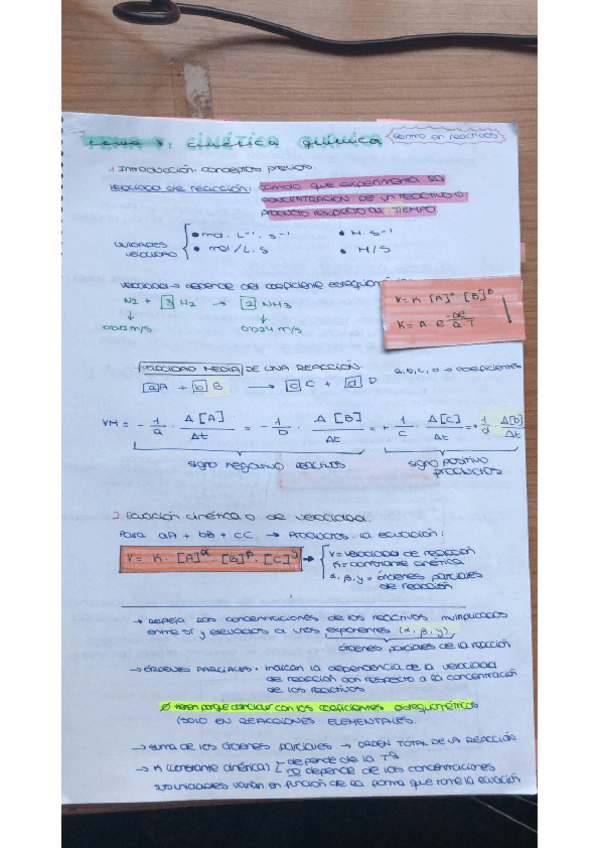 TEMA 7: CINÉTICA QUÍMICA
centro en reactivos
1 Introducción: conceptos previos.
velocidad de reacción: cambio que experimenta la
concentración de un reactivo o
producto respecto al TIEMPO.
UNIDADES VELOCIDAD
• mol · L⁻¹ · s⁻¹ • M · s⁻¹
• mol / L · s • M/s
velocidad → depende del coeficiente estequiométrico
N2 + 3 H2 → 2 NH3
0'012 M/s 0'024 M/s
V = K · [A]^α [B]^β
K = A · e^(-ΔE/R·T) !
VELOCIDAD MEDIA DE UNA REACCIÓN. a, b, c, d → coeficientes
a A + b B → c C + d D
VM = - 1/a · Δ[A]/Δt = - 1/b · Δ[B]/Δt = + 1/c · Δ[C]/Δt = + 1/d · Δ[D]/Δt
signo negativo reactivos signo positivo productos
2. Ecuación cinética o de velocidad.
Para aA + bB + cC → Productos. la ecuación:
V = K · [A]^α · [B]^β · [C]^γ →
V = velocidad de reacción
K = constante cinética
α, β, γ = órdenes parciales de reacción
→ Refleja las concentraciones de los reactivos multiplicados
entre sí y elevados a unos exponentes (α, β, γ)
órdenes parciales de la reacción
→ ÓRDENES PARCIALES: indican la dependencia de la velocidad
de reacción con respecto a la concentración
de los reactivos
Ø tienen porque coincidir con los coeficientes estequiométricos
(SOLO EN REACCIONES ELEMENTALES.
→ suma de los órdenes parciales → ORDEN TOTAL DE LA REACCIÓN
→ K (constante cinética) [ depende de la Tª
no depende de las concentraciones
sus unidades varían en función de la forma que tome la ecuación